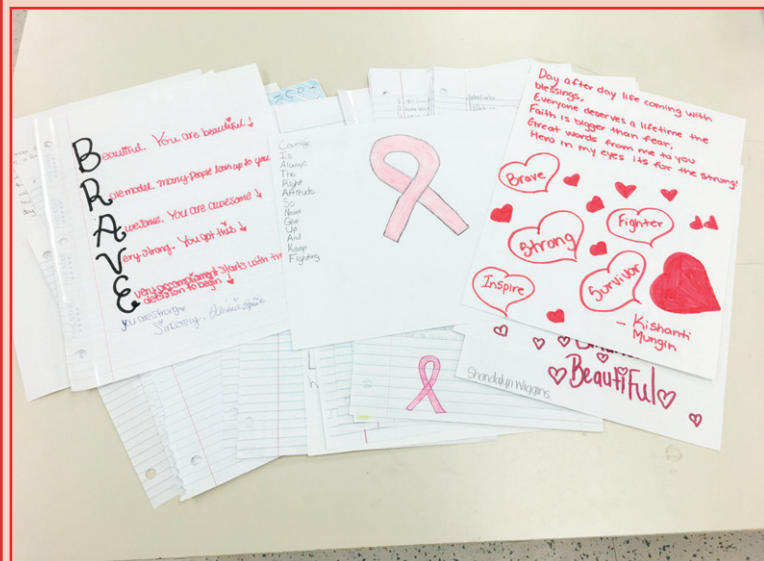 Beautiful. You are beautiful!
Role model. Many people look up to you
Awesome. You are awesome
Very strong. You got this
Every accompliament starts with the
decision to begin
you are strong
Sincerely,
Courage
Is
Always
The
Right
Attitude
So
Never
Give
Up
And
Keep
Fighting
Day after day life coming with
blessings,
Everyone deserves a lifetime the
Faith is bigger than fear.
Great words from me to you
Hero in my eyes its for the strong!
Brave
Fighter
Strong
Survivor
Inspire
- Kishanti
Mungin
Beautiful
Shandalyn Wiggins